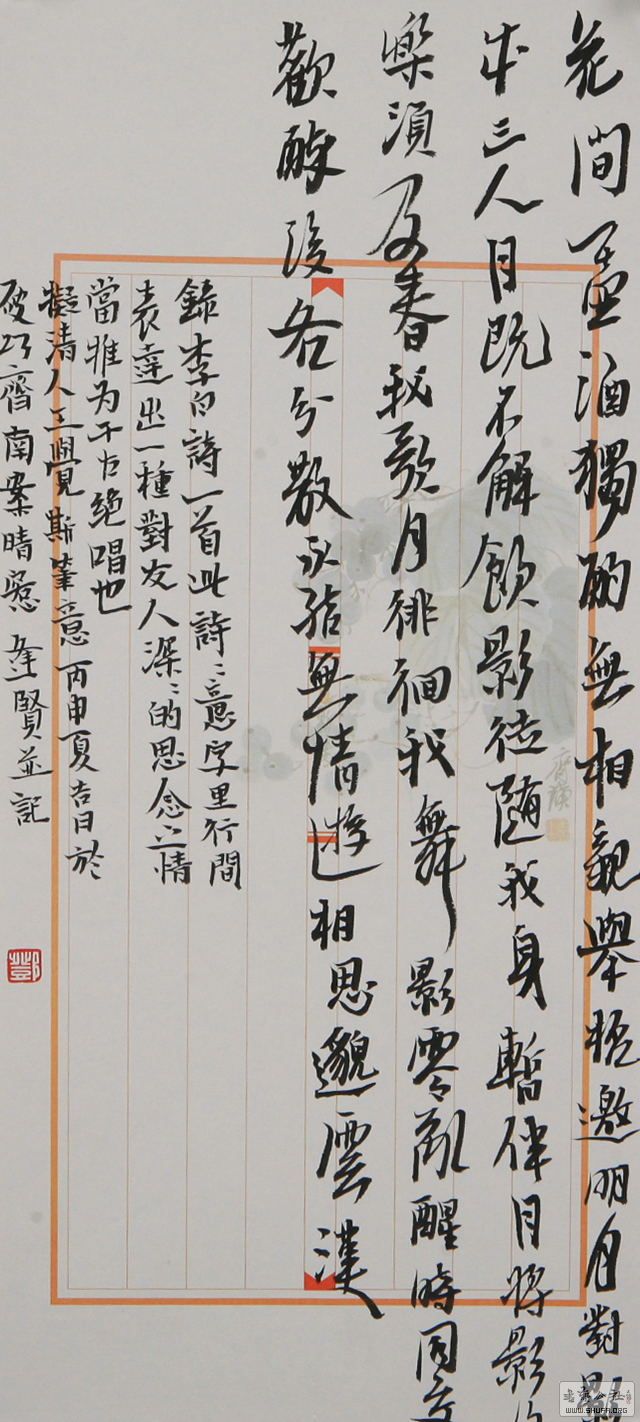 花間一壺酒獨酌無相親舉杯邀明月對影
成三人月既不解飲影徒隨我身暫伴月將影
樂須及春我歌月徘徊我舞影零亂醒時同交
歡醉後各分散永結無情遊相思邈雲漢
錄李白詩一首此詩〻意字里行間
表達出一種對友人深〻的思念之情
當推为千古绝唱也
擬清人王覺斯筆意丙申夏吉日於
破巧齋南案晴窓逢賢並記
齊璜
書法公社
WWW.SHUFA.ORG